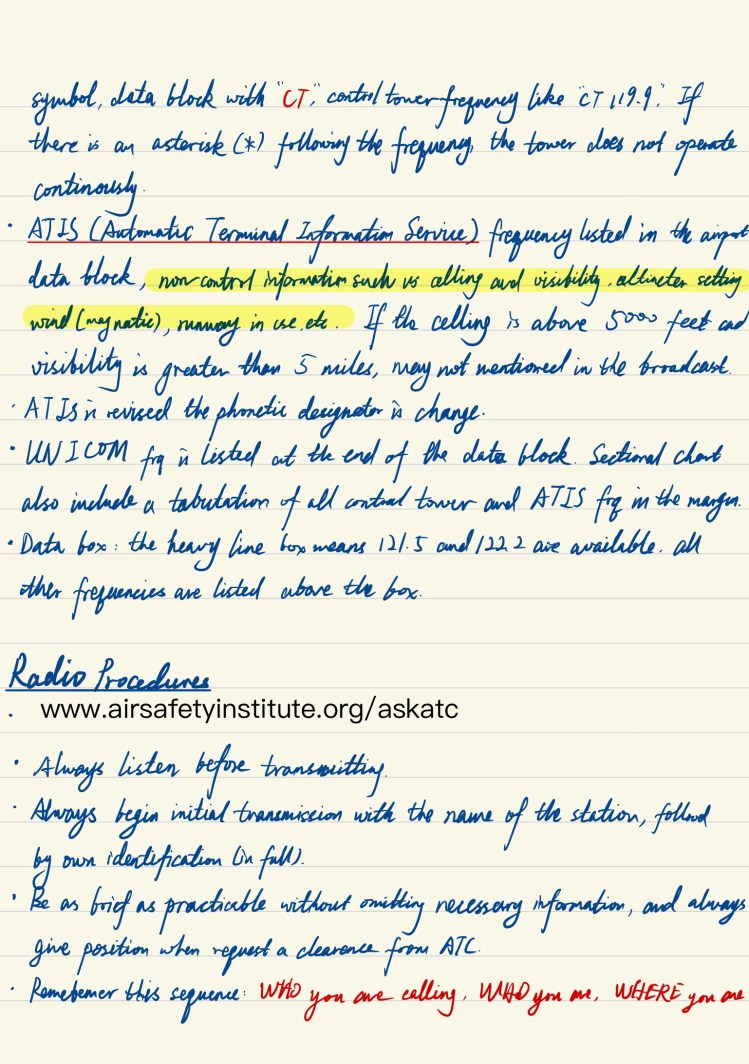 symbol, data block with "CT", control tower frequency like "CT 119.9". If
there is an asterisk (*) following the frequency, the tower does not operate
continously.
· ATIS (Automatic Terminal Information Service) frequency listed in the airport
data block, non-control information such vs celling and visibility, altimeter setting
wind (magnatic), runway in use, etc. If the celling is above 5000 feet and
visibility is greater than 5 miles, may not mentioned in the broadcast.
· ATIS is revised the phonetic designator is change.
· UNICOM frq is listed at the end of the data block. Sectional chart
also include a tabutation of all control tower and ATIS frq in the margin.
· Data box: the heavy line box means 121.5 and 122.2 are available. all
other frequencies are listed above the box.
Radio Procedures
· www.airsafetyinstitute.org/askatc
· Always listen before transmitting.
· Always begin initial transmission with the name of the station, follow
by own identification (in full).
· Be as brief as practicable without omitting necessary information, and always
give position when request a clearence from ATC.
· Remebemer this sequence: WHO you are calling, WHO you are, WHERE you are